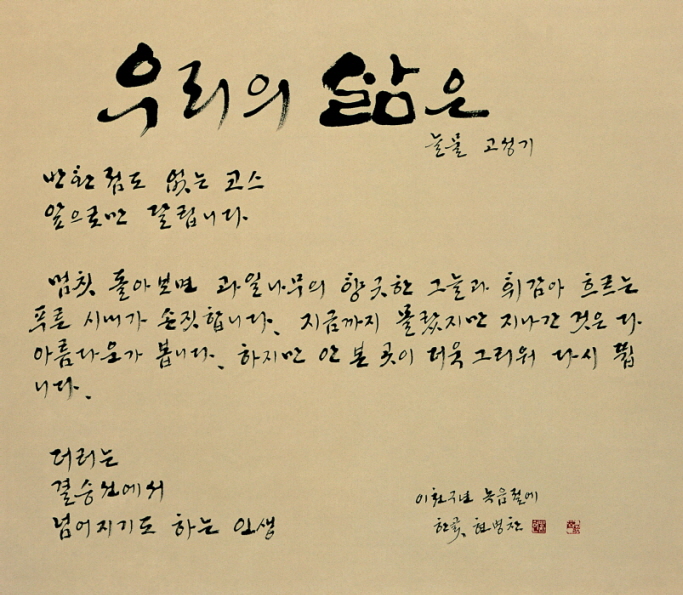 우리의 삶은
늘물 고성기
반환점도 없는 코스
앞으로만 달립니다.
멈칫 돌아보면 과일나무의 향긋한 그늘과 휘감아 흐르는
푸른 시내가 손짓합니다. 지금까지 몰랐지만 지나간 것은 다
아름다운가 봅니다. 하지만 안 본 곳이 더욱 그리워 다시 뜁
니다.
더러는
결승선에서
넘어지기도 하는 인생
이천 년 녹음절에
한곬 현병찬